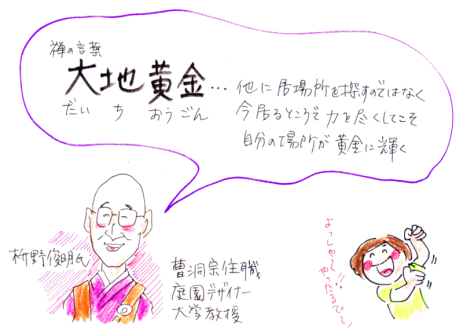 禅の言葉
大地黄金… 他に居場所を探すのではなく
だい ち おうごん 今居るところで力を尽くしてこそ
自分の場所が黄金に輝く
枡野俊明氏
曹洞宗住職
庭園デザイナー
大学教授
よっしゃー!!
やったるでぃ!